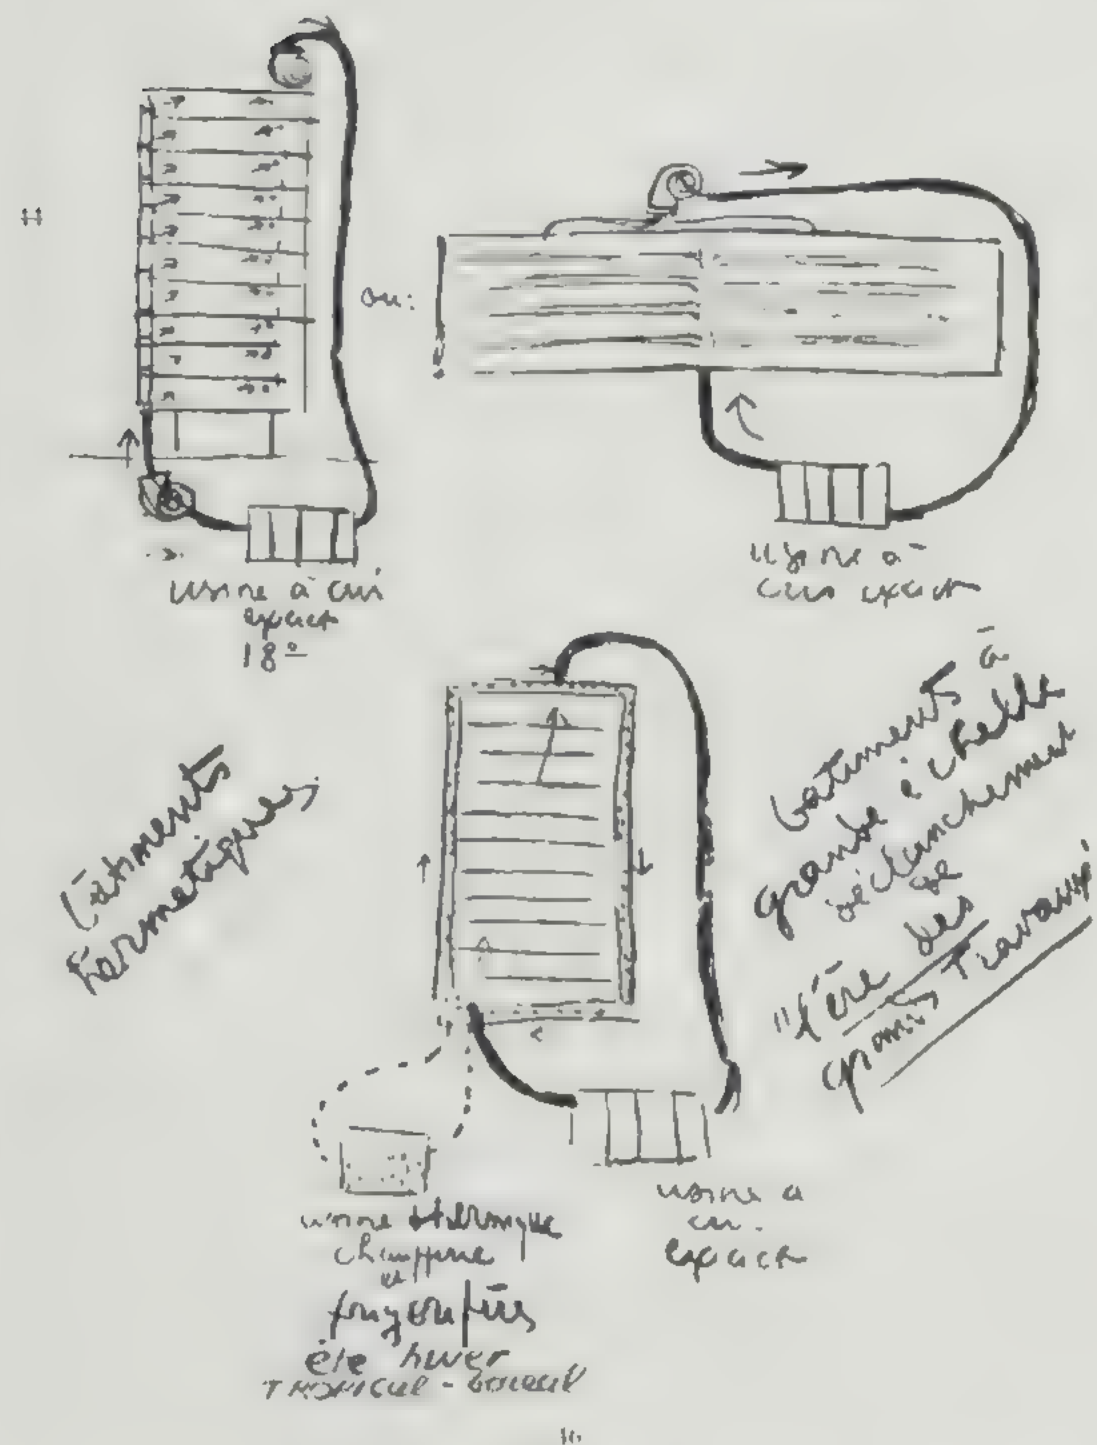 11
ou:
usine à air
exact
18°
usine à
air exact
bâtiments
hermétiques
bâtiments à
grande échelle
déclanchement
de
"l'ère des
grands Travaux"
usine thermique
chauffrie
et
frigorifère
usine a
air
exact
été hiver
TROPICAL - boreal